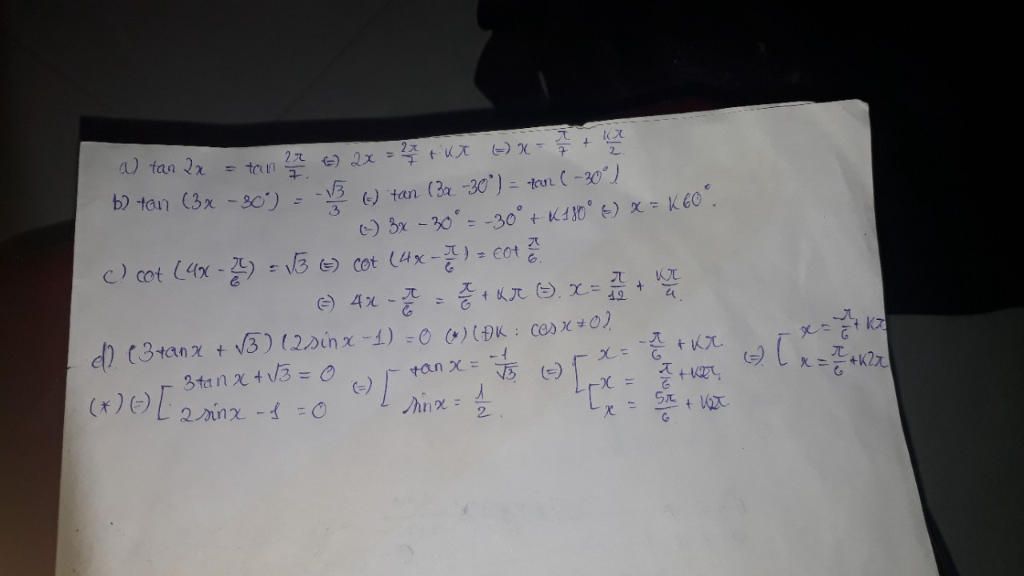 a) tan 2x = tan 2π/7 (=) 2x = 2π/7 + kπ (=) x = π/7 + kπ/2
b) tan (3x - 30°) = -√3/3 (=) tan (3x - 30°) = tan (-30°)
(=) 3x - 30° = -30° + k180° (=) x = k60°.
c) cot (4x - π/6) = √3 (=) cot (4x - π/6) = cot π/6.
(=) 4x - π/6 = π/6 + kπ (=). x = π/12 + kπ/4.
d) (3tanx + √3)(2sinx - 1) = 0 (*) (ĐK: cosx ≠ 0).
(*) (=) [ 3tanx + √3 = 0 (=) [ tanx = -1/√3 (=) [ x = -π/6 + kπ (=) [ x = -π/6 + kπ
2sinx - 1 = 0 sinx = 1/2. [ x = π/6 + k2π x = π/6 + k2π
x = 5π/6 + k2π